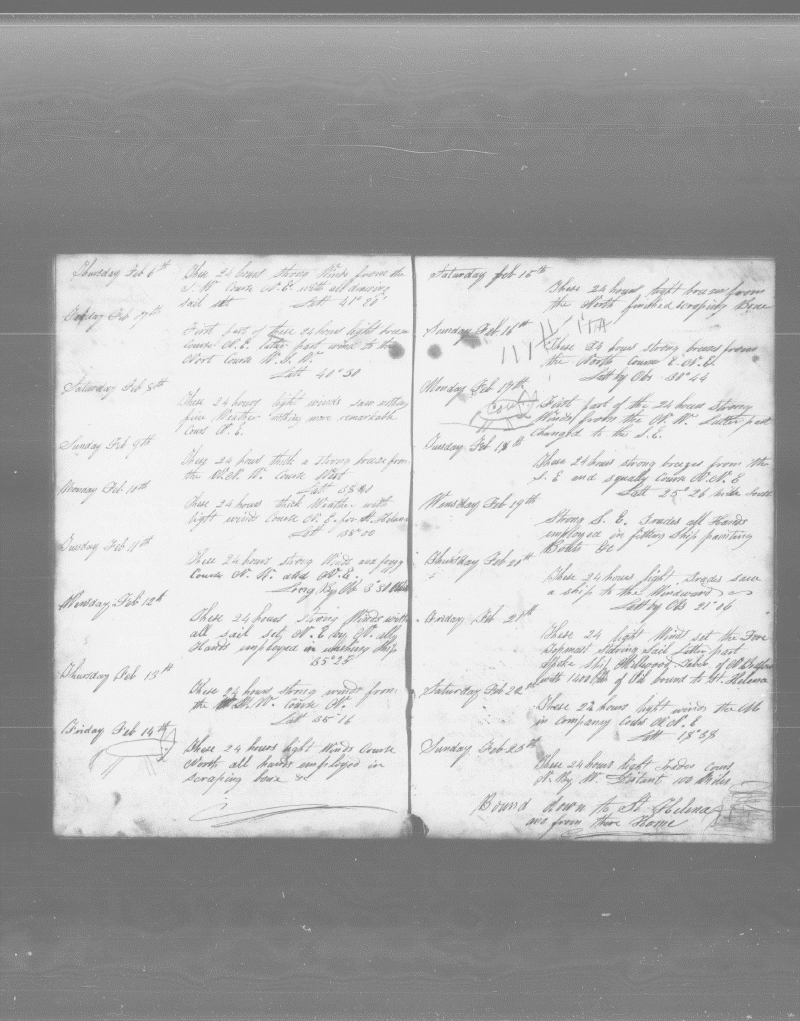 Thursday Feb 6th
These 24 hours strong Winds from the
S. W. Course N. E. with all drawing
sail set Latt 41° 26'
Friday Feb 7th
First part of these 24 hours light breeze
Course N. E. latter part wind to the
Nort Course
Latt 40° 30
Saturday Feb 8th
These 24 hours light winds saw nothing
fine Weather nothing more remarkable
Cours N. E.
Sunday Feb 9th
These 24 hours thick a strong breeze from
the N. N. W. Course West
Latt
Monday Feb 10th
These 24 hours thick Weather with
light winds Course N. E. for St. Helena
Latt
Tuesday Feb 11th
These 24 hours strong Winds and foggy
Course N. W. and N. E.
Long By Ob
Wensday Feb 12th
These 24 hours Strong Winds with
all sail set N. E.
Hands employed in washing ship
35° 25'
Thursday Feb 13th
These 24 hours strong winds from
the W. N. W. Course N.
Latt 35° 16
Friday Feb 14th
These 24 hours light Winds Course
North all hands employed in
scraping bone &c
Saturday feb 15th
These 24 hours light breezes from
the North finished scraping Bone
Sunday Feb 16th
These 24 hours strong breezes from
the North Course E. N. E.
Latt by Obs 30° 44
Monday Feb 17th
Cow
First part of the 24 hours Strong
Winds from the N. W. Latter part
changed to the S. E.
Tuesday Feb 18th
These 24 hours strong breezes from the
S. E and squally Course N. N. E
Latt 25° 26 South
Wensday Feb 19th
Strong S. E. Trades all Hands
employed in fitting ship painting
Boats &c
Thursday Feb 20th
These 24 hours light Trades saw
a ship to the Windward
Latt by Obs 21° 06
Friday Feb 21st
These 24 light Winds set the Fore
Topmast studing sail Latter part
Spoke ship of N Bedford
with 1400 bbls of Oil bound to St. Helena
Saturday Feb 22nd
These 24 hours light winds the
in Company Cours N. N. E
Latt 18° 58
Sunday Feb 23rd
These 24 hours light Trades Cours
N. By W. Distant 100 Miles
Bound down to St. Helena
and from there Home